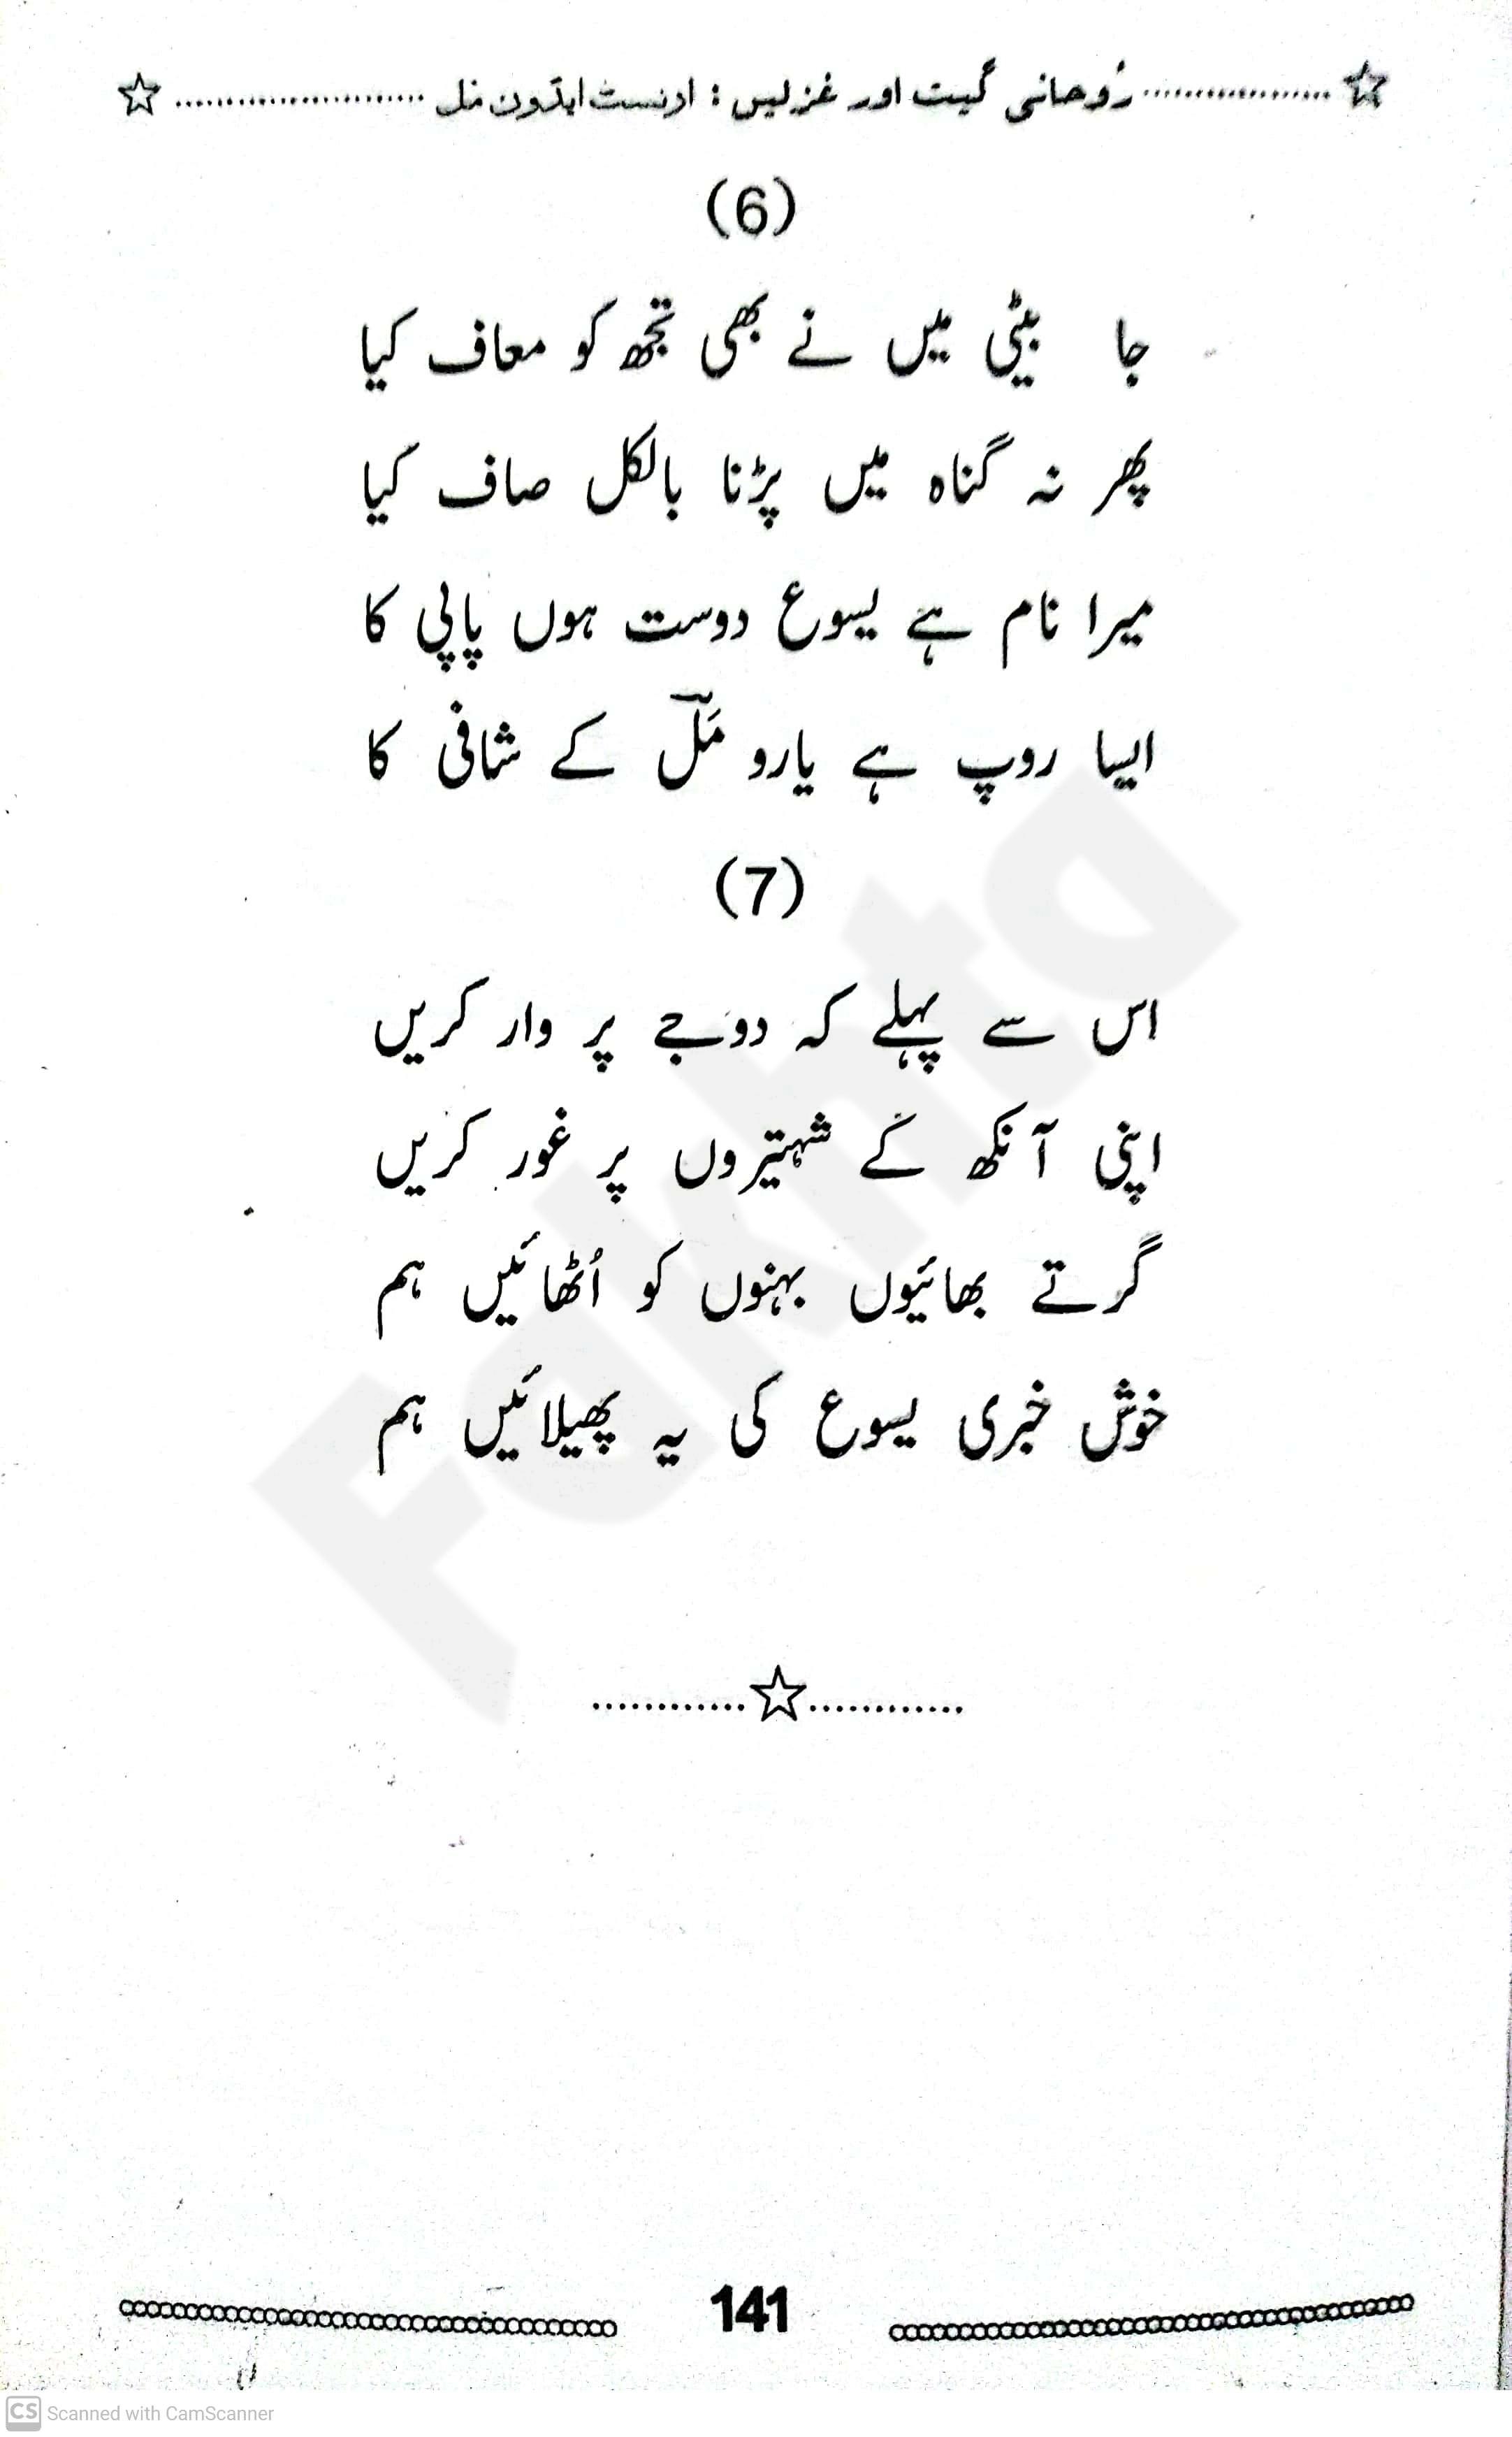 ☆..................رُوحانی گیت اور غزلیں : ارنسٹ ایڈون مَل........................☆
(6)
جا بیٹی میں نے بھی تجھ کو معاف کیا
پھر نہ گناہ میں پڑنا بالکل صاف کیا
میرا نام ہے یسوع دوست ہوں پاپی کا
ایسا روپ ہے یارو مَلؔ کے شافی کا
(7)
اس سے پہلے کہ دوجے پر وار کریں
اپنی آنکھ کے شہتیروں پر غور کریں
گرتے بھائیوں بہنوں کو اُٹھائیں ہم
خوش خبری یسوع کی یہ پھیلائیں ہم
............☆............
141
CS Scanned with CamScanner
Fakhta